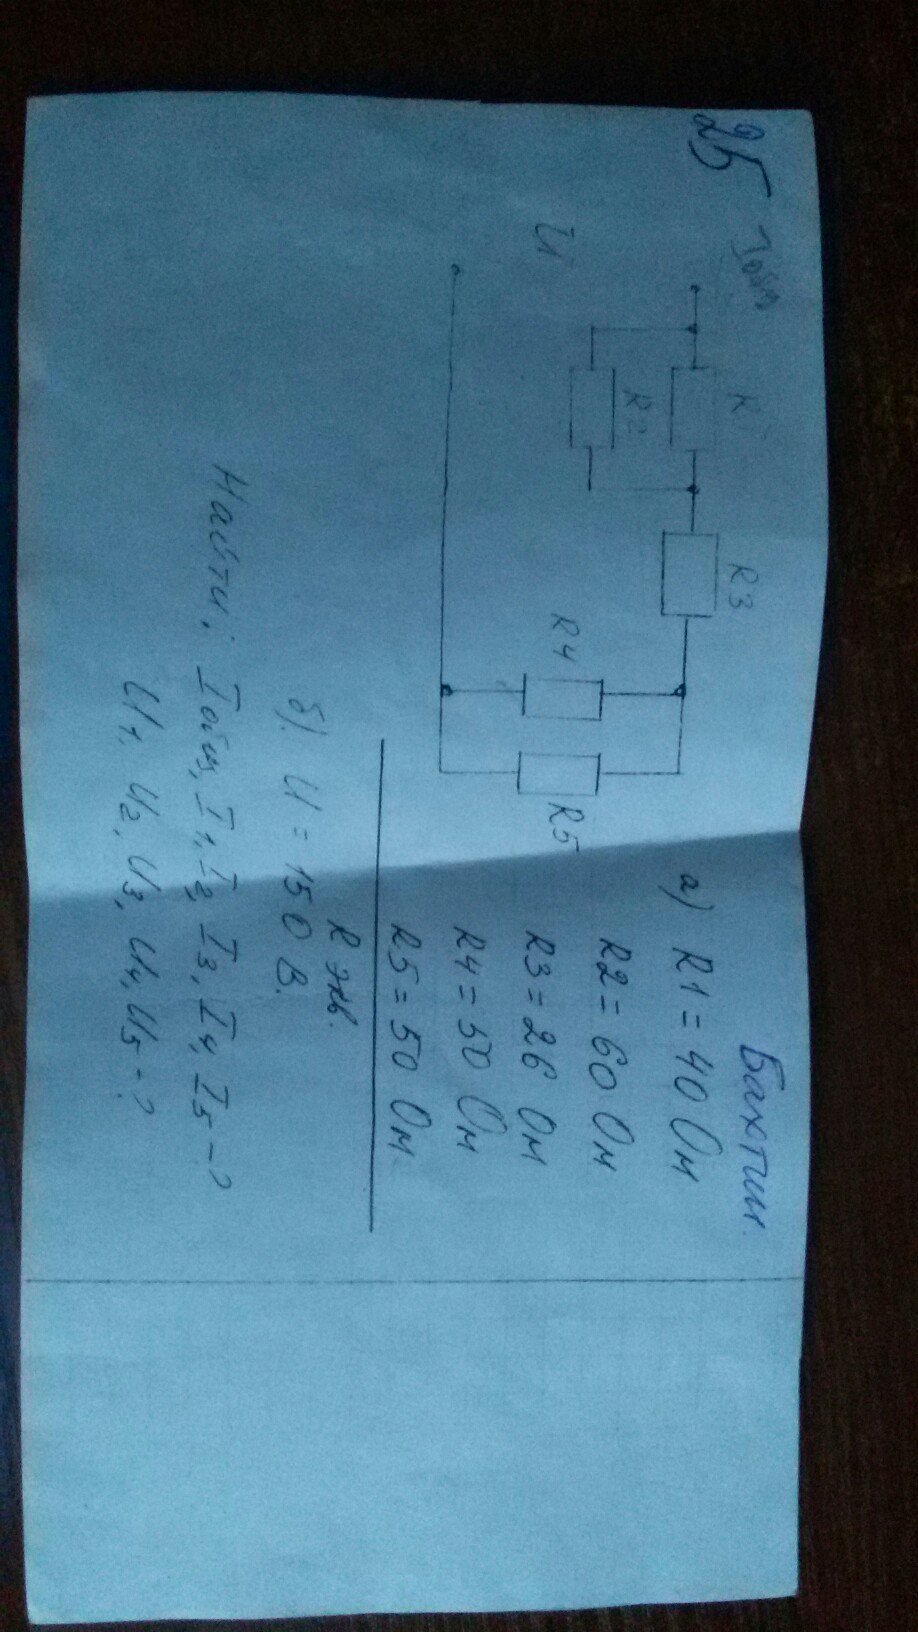 25
Бахтин.
Iобщ
R1
R3
R2
U
R4
R5
а) R1 = 40 Ом
R2 = 60 Ом
R3 = 26 Ом
R4 = 50 Ом
R5 = 50 Ом
R экв.
б). U = 150 В.
Найти: Iобщ, I1, I2, I3, I4, I5 - ?
U1, U2, U3, U4, U5 - ?